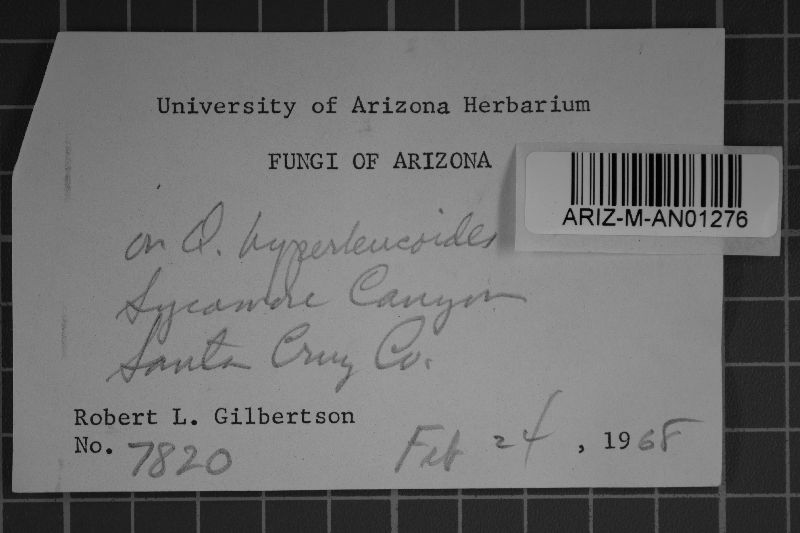 University of Arizona Herbarium
FUNGI OF ARIZONA
ARIZ-M-AN01276
on Q. hypoleucoides
Sycamore Canyon
Santa Cruz Co.
Robert L. Gilbertson
No. 7820
Feb 24, 1968